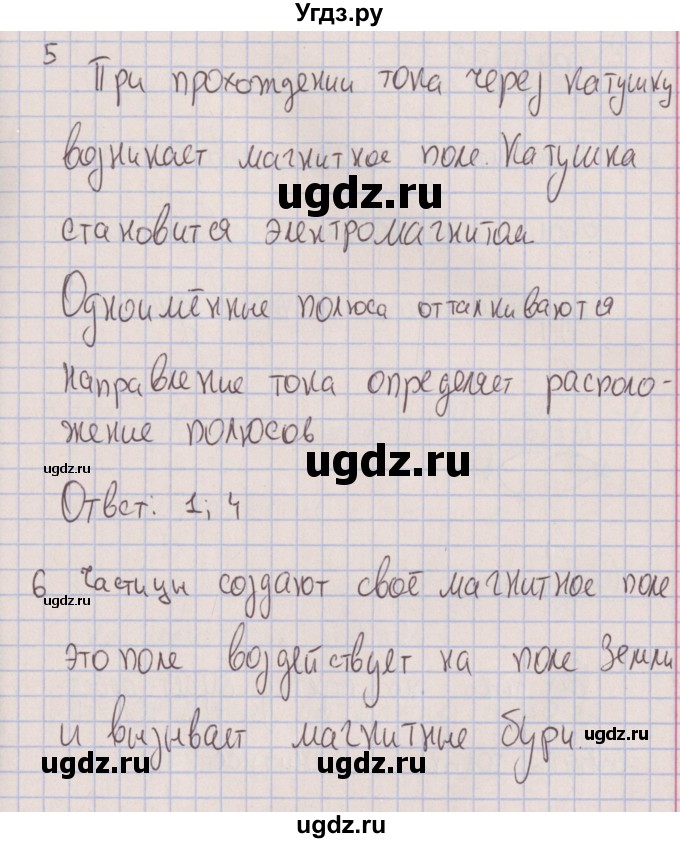 Угдз.ру
5
При прохождении тока через катушку
возникает магнитное поле. Катушка
ugdz.ru
становится электромагнитом
Одноимённые полюса отталкиваются
направление тока определяет располо-
жение полюсов
ugdz.ru
ugdz.ru
Ответ: 1; 4
6 Частицы создают своё магнитное поле
ugdz.ru
это поле воздействует на поле Земли
ugdz.ru
и вызывает магнитные бури.
ugdz.ru
ugdz.ru
ugdz.ru
ugdz.ru